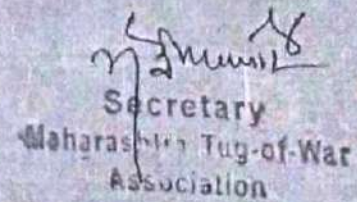 Secretary
Maharashtra Tug-of-War
Association